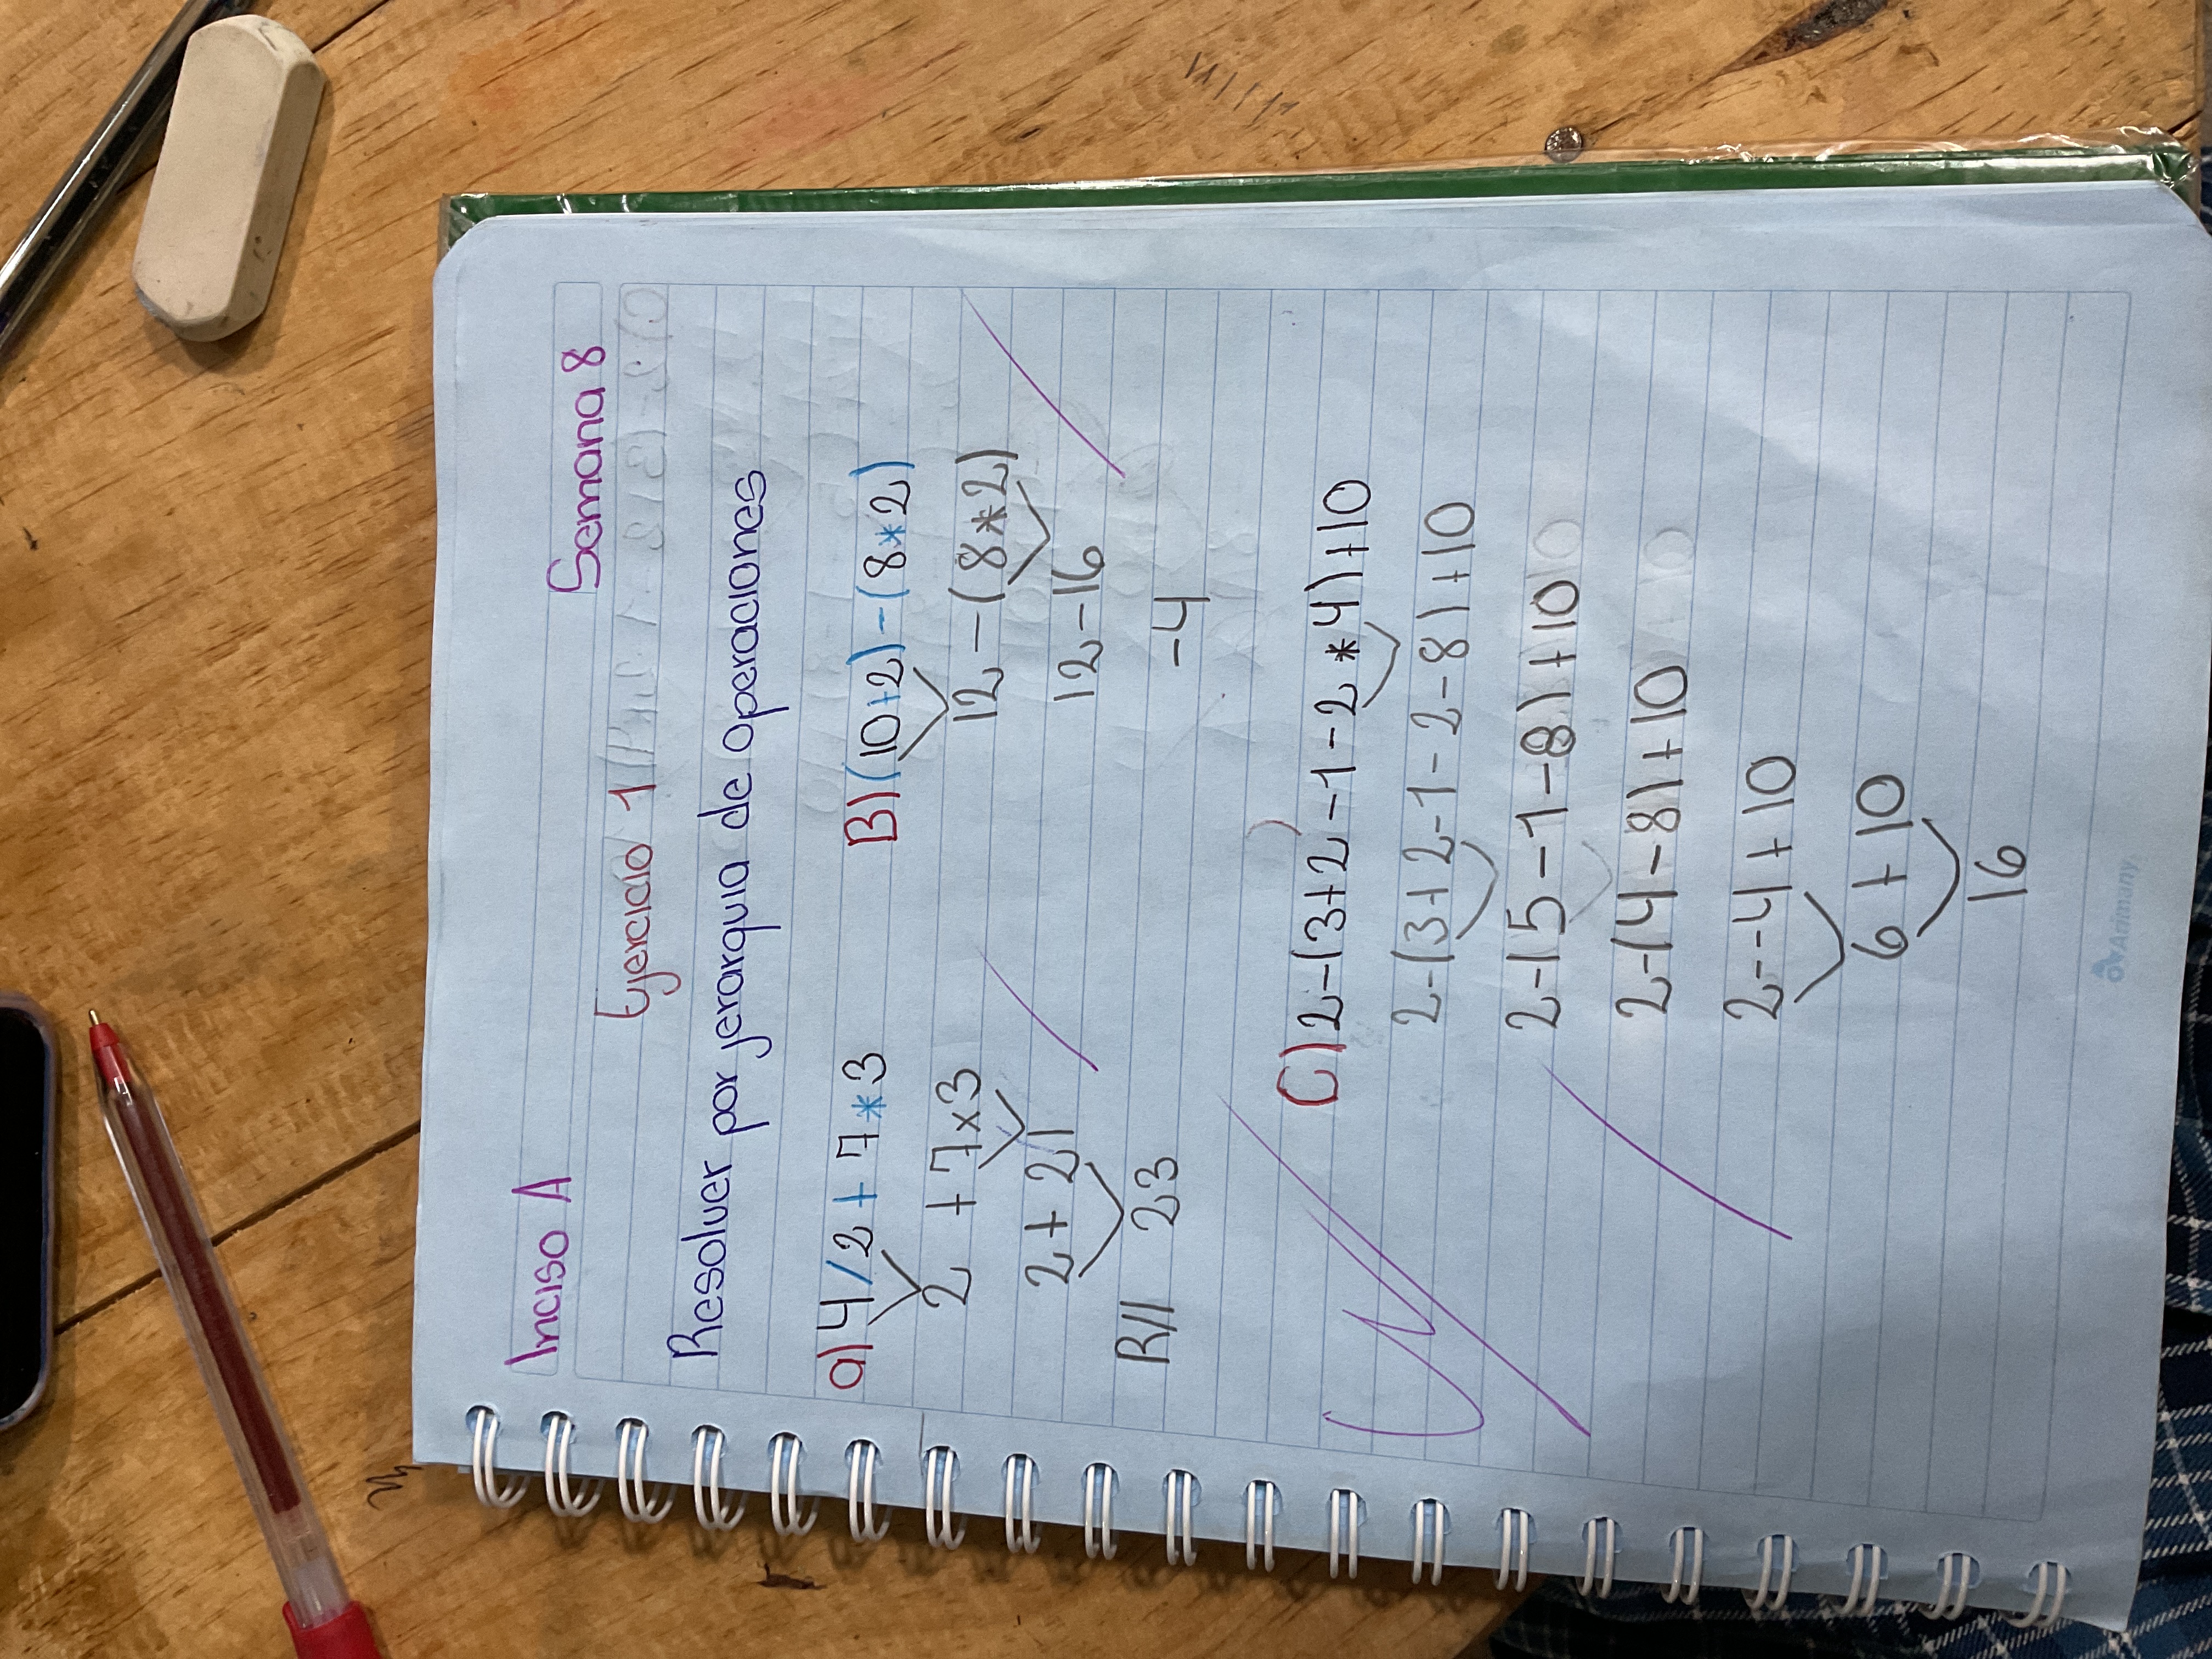 Inciso A Semana 8
Ejercicio 1
Resolver por jerarquia de operaciones
a) 4/2 + 7*3
2 + 7x3
2 + 21
R// 23
B) (10+2) - (8*2)
12 - (8*2)
12 - 16
-4
C) 2-(3+2-1-2*4)+10
2-(3+2-1-2-8)+10
2-(5-1-8)+10
2-(4-8)+10
2--4+10
6+10
16
Animany